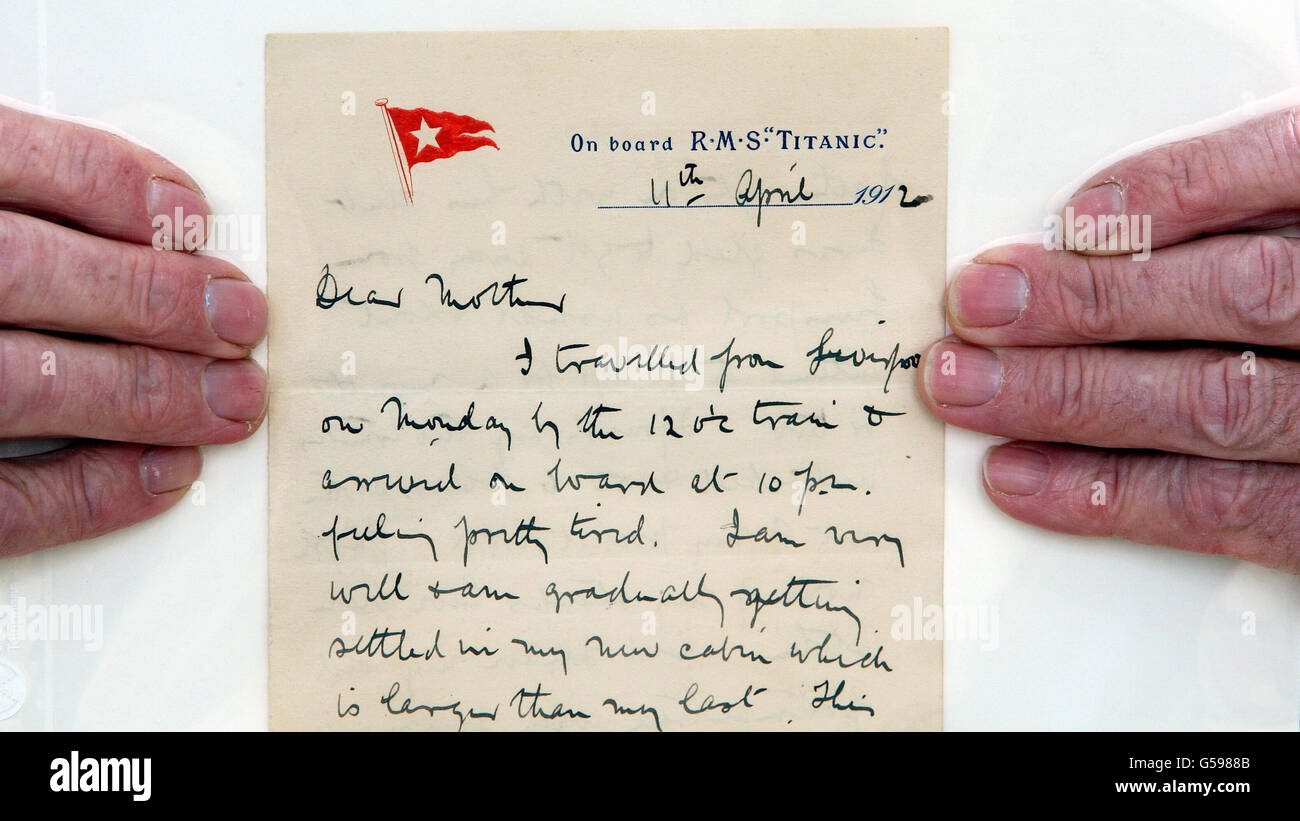 On board R·M·S·"TITANIC".
11th April 1912
Dear Mother
I travelled from Liverpoo
on Monday by the 12 o'c train &
arrived on board at 10 p.m.
feeling pretty tired. I am very
well & am gradually getting
settled in my new cabin which
is larger than my last. This
alamy
Image ID: G5988B
www.alamy.com